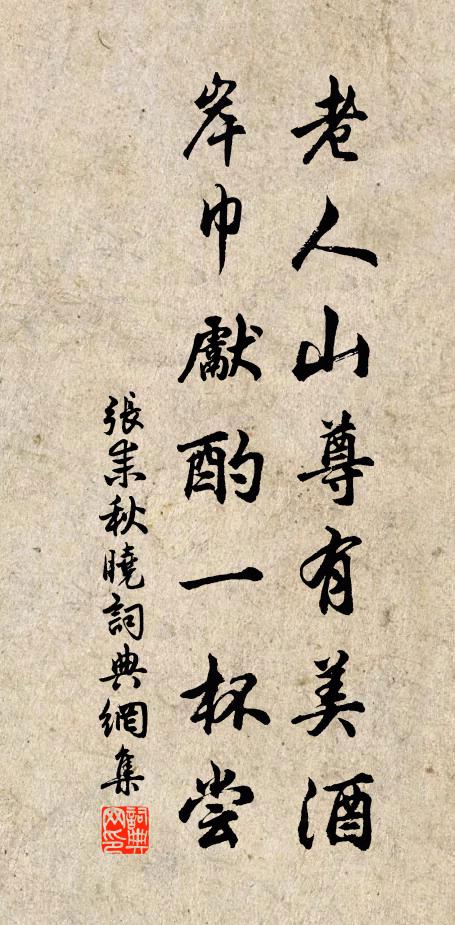 老人山尊有美酒
岸巾獻酌一杯尝
張耒秋曉詞典網集
詞典
网印